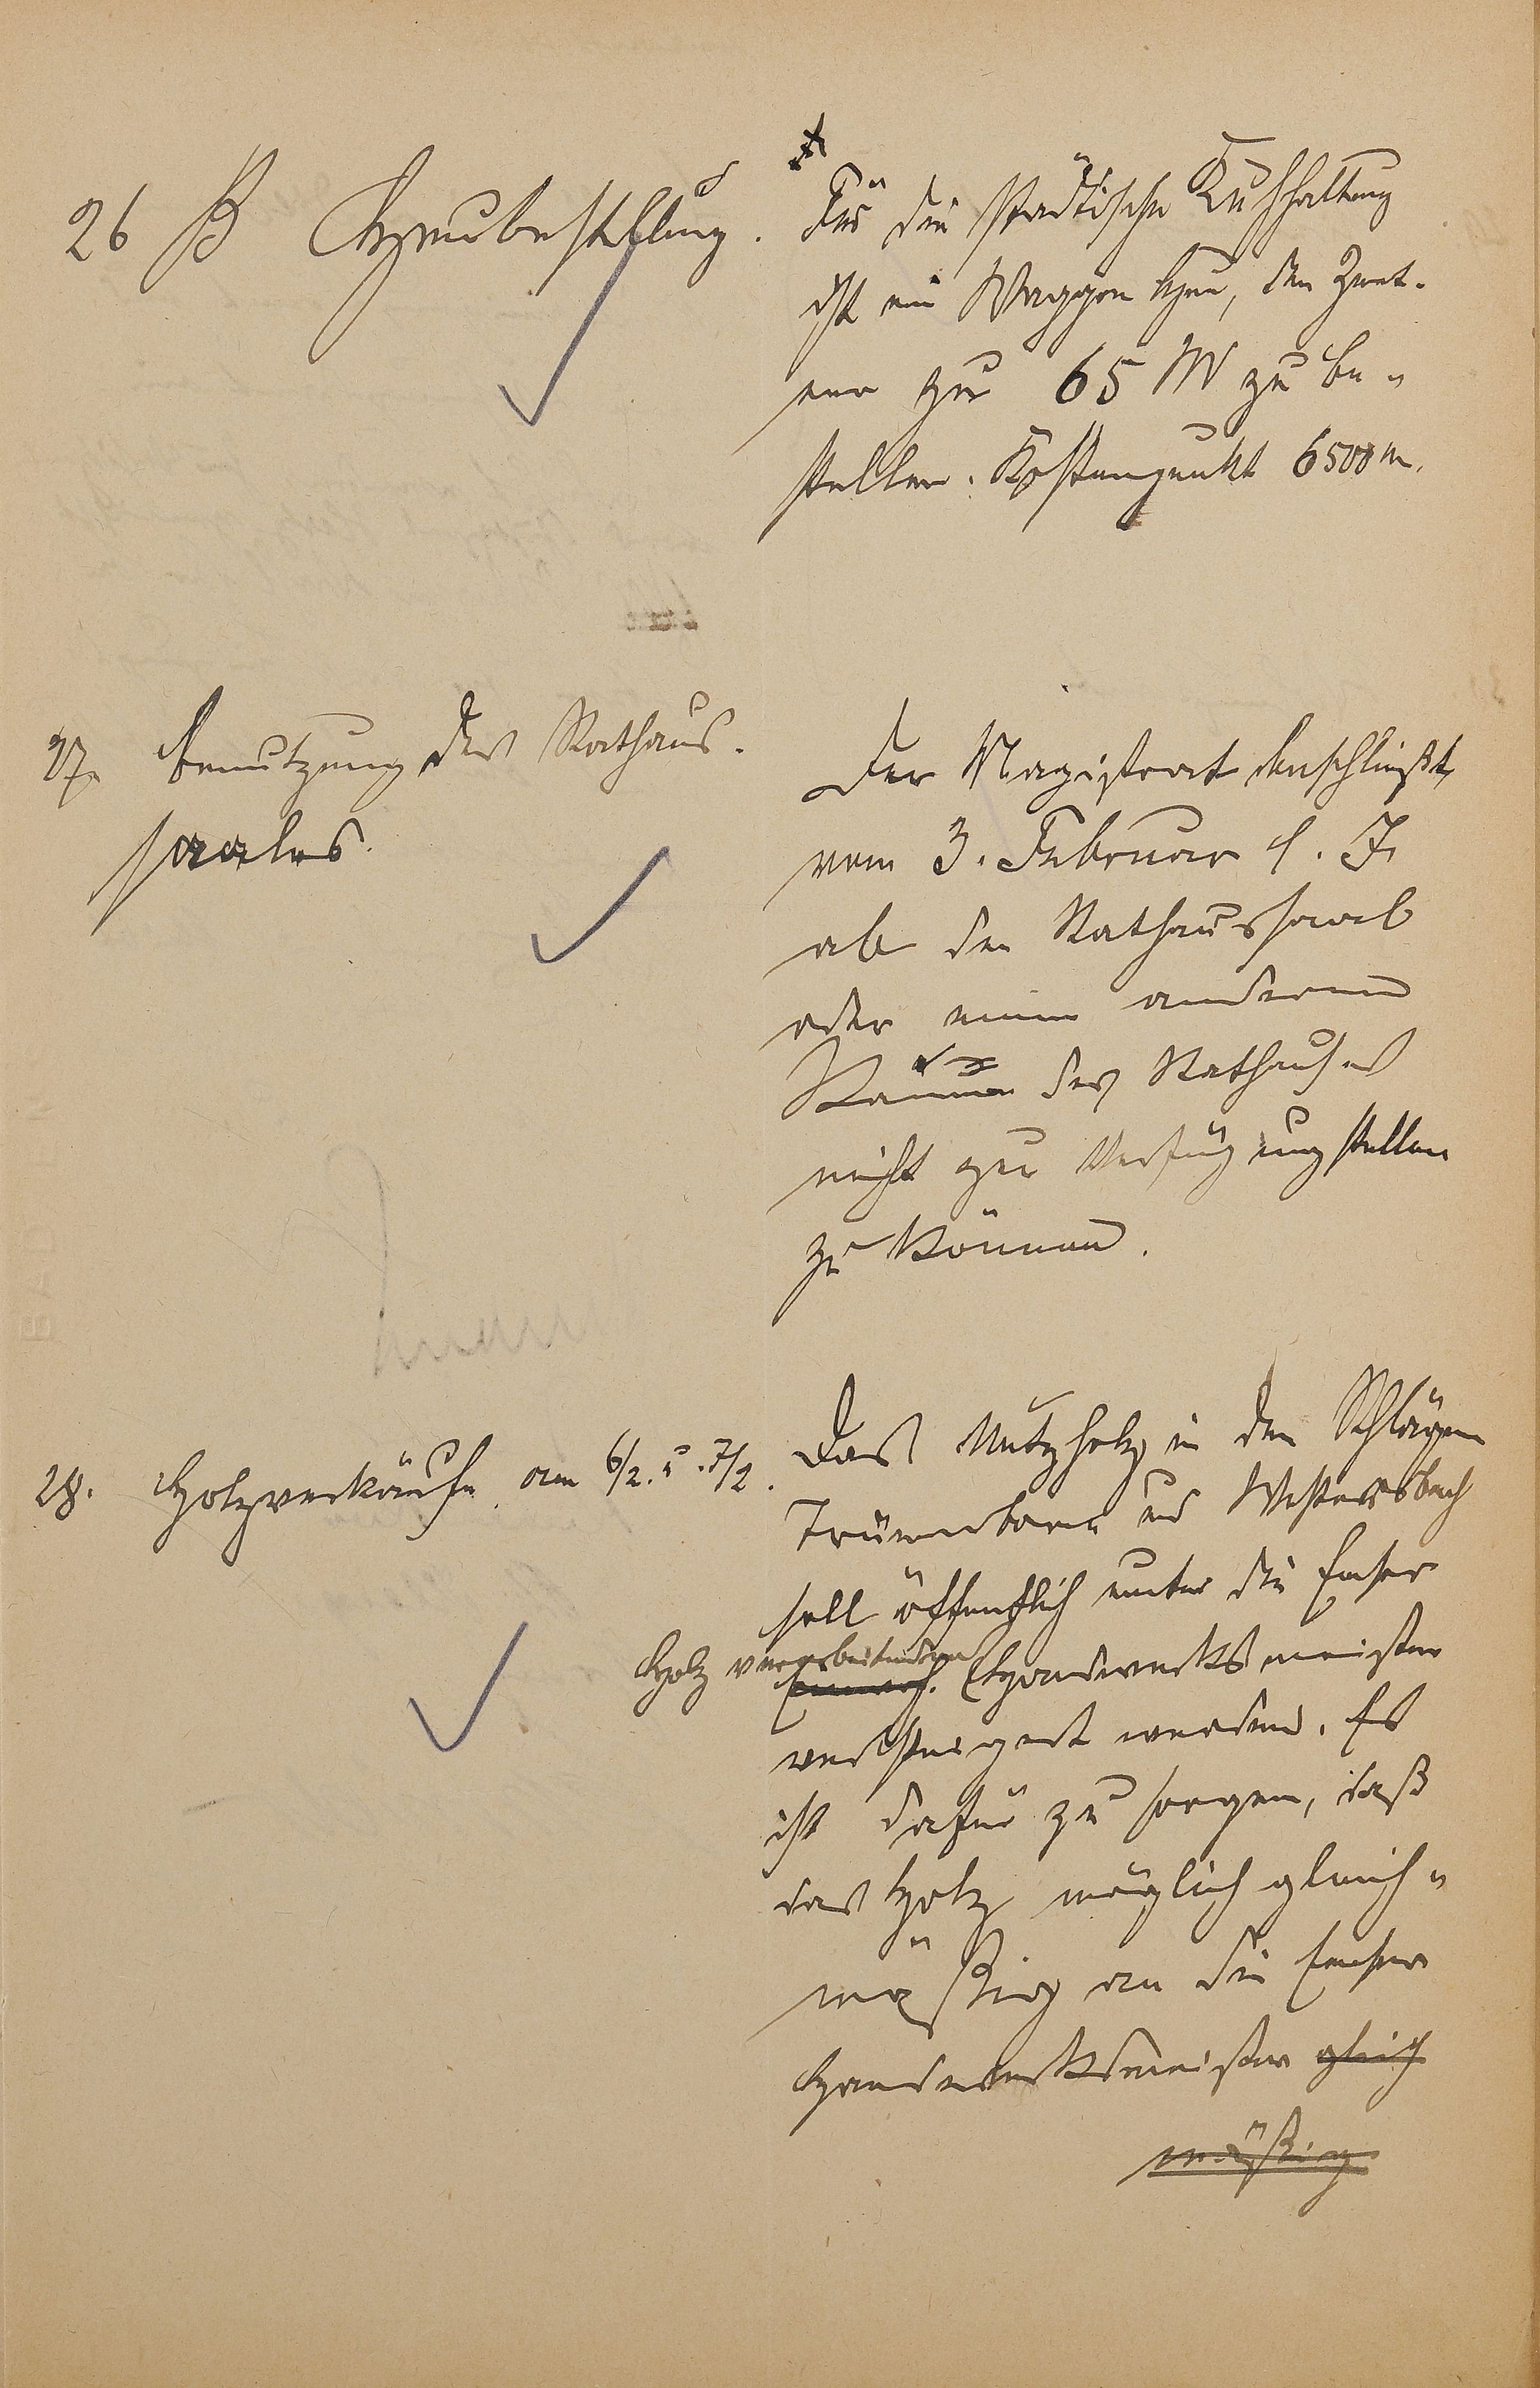 26 B Heubestellung.
Für die städtische Kuhhaltung
ist ein Waggon Heu, den Zent-
ner zu 65 M zu be-
stellen. Kostenpunkt 6500 M.
27. Benutzung des Rathaus-
saales.
Der Magistrat beschließt,
vom 3. Februar d. J.
ab den Rathaussaal
oder einen anderen
Raum des Rathauses
nicht zur Verfügung stellen
zu können.
28. Holzverkäufe am 6/2. u. 7/2.
Das Nutzholz in den Schlägen
und Westerbach
soll öffentlich unter die Emser
Holz verarbeitenden
Handwerksmeister
versteigert werden. Es
ist dafür zu sorgen, daß
das Holz möglich gleich-
mäßig an die Emser
Handwerksmeister gleich
mäßig